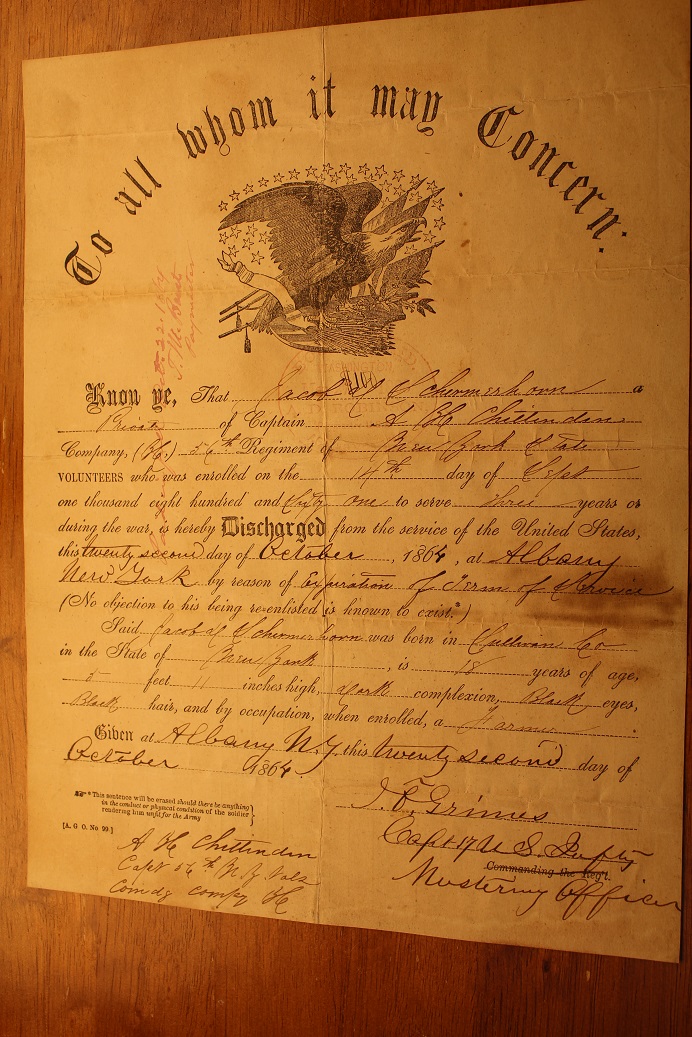 To all whom it may Concern:
Oct. 22. 1864
Paymaster
Know ye, That Jacob Y Schermerhorn a
Private of Captain A H Chittenden
Company, (H.) 56th Regiment of New York State
VOLUNTEERS who was enrolled on the 14th day of Sept
one thousand eight hundred and Sixty one to serve three years or
during the war, is hereby Discharged from the service of the United States,
this twenty second day of October, 1864, at Albany
New York by reason of Expiration of Term of Service
(No objection to his being re-enlisted is known to exist.*)
Said Jacob Y Schermerhorn was born in Sullivan Co
in the State of New York, is 18 years of age,
5 feet 11 inches high, dark complexion, Black eyes,
Black hair, and by occupation, when enrolled, a Farmer.
Given at Albany N.Y. this twenty second day of
October 1864.
*This sentence will be erased should there be anything
in the conduct or physical condition of the soldier
rendering him unfit for the Army
[A. G. O. No 99.]
A H Chittenden
Capt 56th N.Y. Vols
Comdg Compy H
J. F. Grimes
Capt 17 U S Infty
Commanding the Reg't.
Mustering Officer